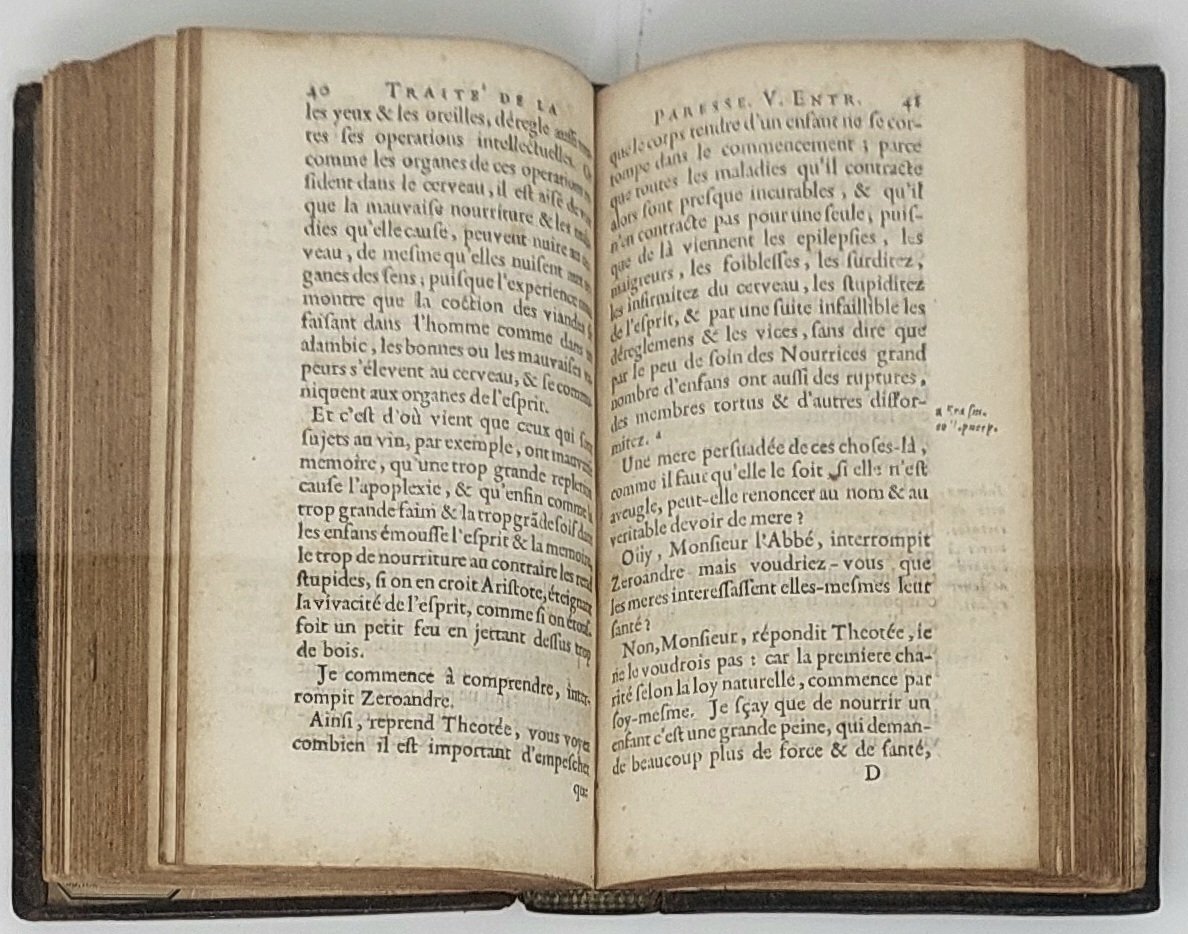 40 TRAITE' DE LA
les yeux & les oreilles, déregle aussi
tes ses operations intellectuelles.
comme les organes de ces operations
sident dans le cerveau, il est aisé de
que la mauvaise nourriture & les
dies qu'elle cause, peuvent nuire au
veau, de mesme qu'elles nuisent aux
ganes des sens; puisque l'experience
montre que la coction des viandes
faisant dans l'homme comme dans
alambic, les bonnes ou les mauvaises
peurs s'élevent au cerveau, & se
niquent aux organes de l'esprit.
Et c'est d'où vient que ceux qui
sujets au vin, par exemple, ont
memoire, qu'une trop grande repletion
cause l'apoplexie, & qu'enfin comme la
trop grande faim & la trop grāde soif dans
les enfans émousse l'esprit & la memoire,
le trop de nourriture au contraire les rend
stupides, si on en croit Aristote, éteignant
la vivacité de l'esprit, comme si on étouf-
foit un petit feu en jettant dessus trop
de bois.
Je commence à comprendre, inter-
rompit Zeroandre.
Ainsi, reprend Theotée, vous voyez
combien il est important d'empescher
que
PARESSE. V. ENTR. 41
que le corps tendre d'un enfant ne se cor-
rompe dans le commencement; parce
que toutes les maladies qu'il contracte
alors sont presque incurables, & qu'il
n'en contracte pas pour une seule; puis-
que de là viennent les epilepsies, les
maigreurs, les foiblesses, les surditez,
les infirmitez du cerveau, les stupiditez
de l'esprit, & par une suite infaillible les
déreglemens & les vices, sans dire que
par le peu de soin des Nourrices grand
nombre d'enfans ont aussi des ruptures,
des membres tortus & d'autres diffor-
mitez. a
a Erasm.
Une mere persuadée de ces choses-là,
comme il faut qu'elle le soit, si elle n'est
aveugle, peut-elle renoncer au nom & au
veritable devoir de mere?
Oüy, Monsieur l'Abbé, interrompit
Zeroandre mais voudriez-vous que
les meres interessassent elles-mesmes leur
santé?
Non, Monsieur, répondit Theotée, je
ne le voudrois pas: car la premiere cha-
rité selon la loy naturelle, commence par
soy-mesme. Je sçay que de nourrir un
enfant c'est une grande peine, qui deman-
de beaucoup plus de force & de santé,
D